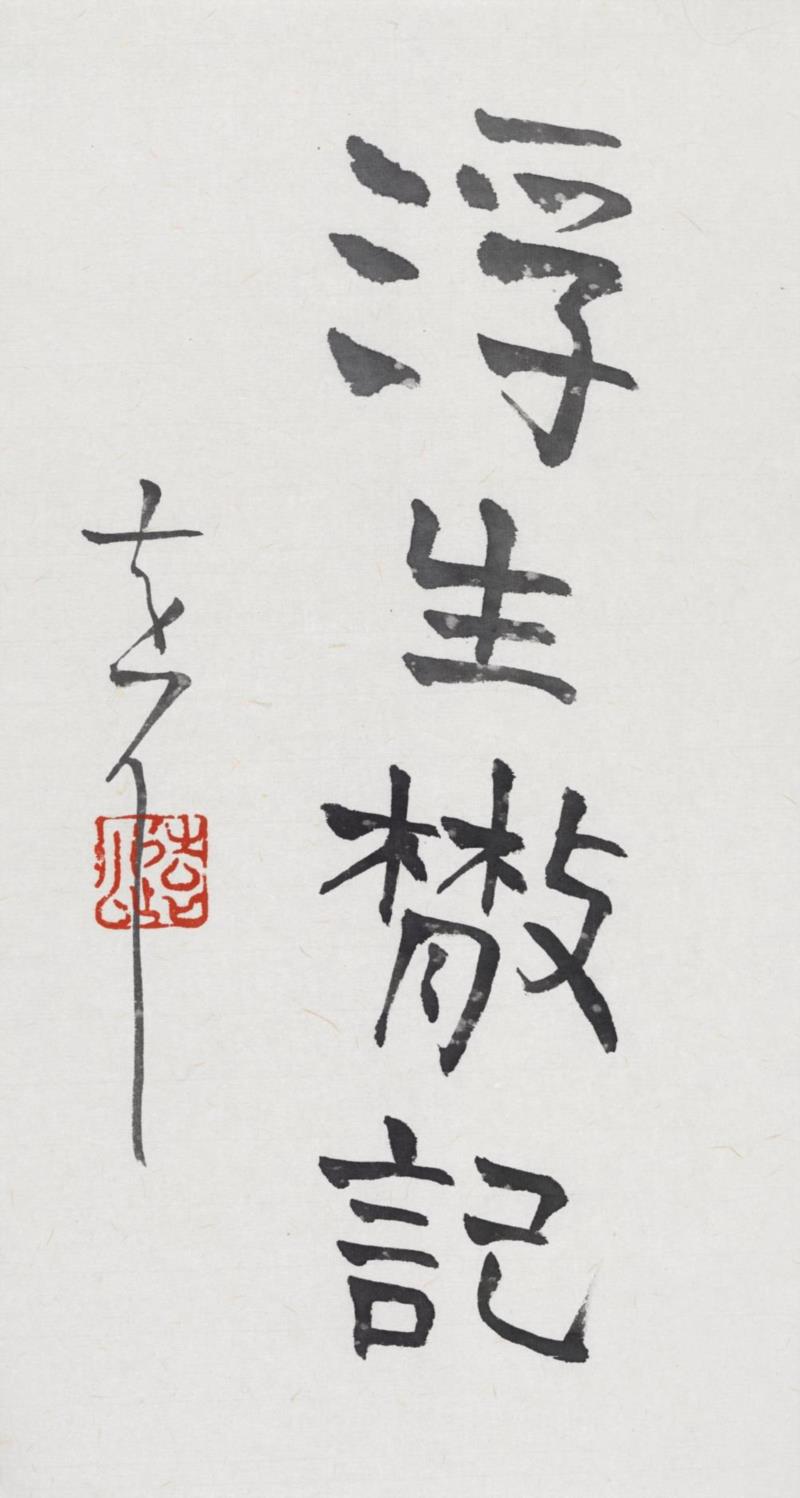 浮生散記